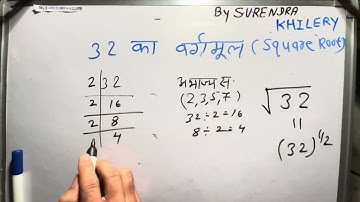 By SURENDRA
KHILERY
32 का वर्गमूल (Square Root)
2 | 32
2 | 16
2 | 8
4
अभाज्य सं.
(2,3,5,7)
32 ÷ 2 = 16
8 ÷ 2 = 4
√32
=
(32)^1/2